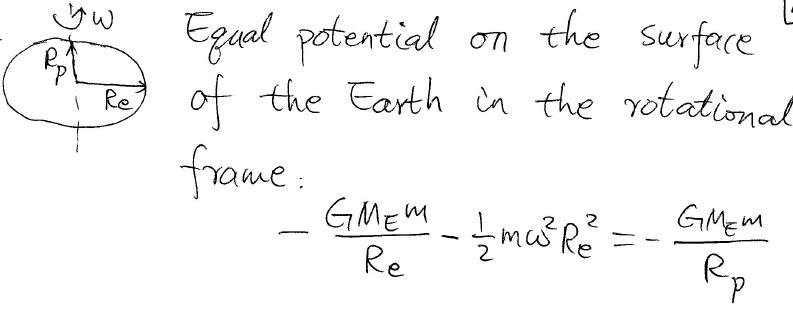 ω
Rp
Re
Equal potential on the surface
of the Earth in the rotational
frame:
- GM_E m / Re - 1/2 mω² Re² = - GM_E m / Rp